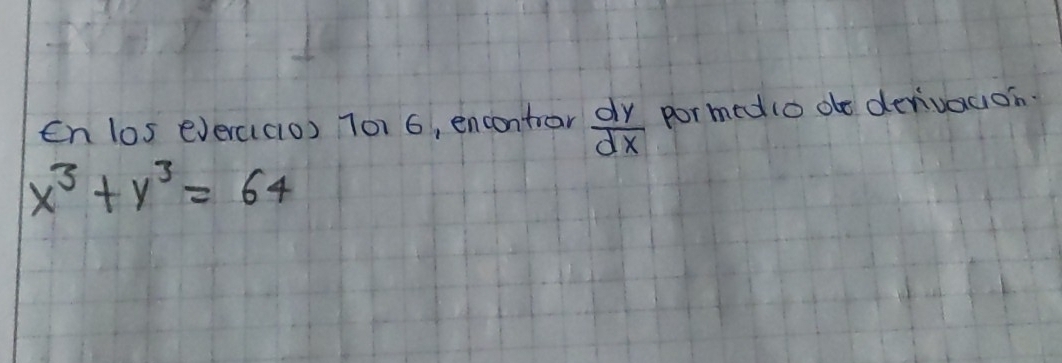 En los ejercicios 101 6, encontrar dy/dx por medio de derivación.
x³ + y³ = 64